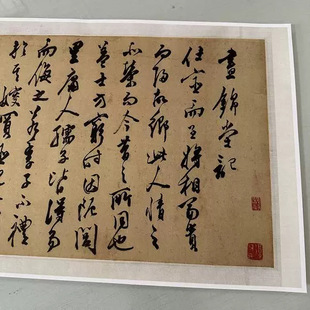 晝錦堂記
仕宦而至將相富貴
而歸故鄉此人情之
所榮而今昔之所同也
蓋士方窮時困阨閭
里庸人孺子皆得易
而侮之若季子不禮
於其嫂買臣